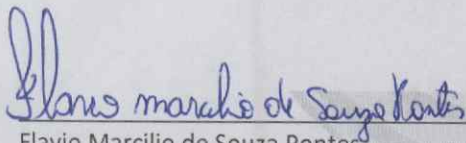 Flavio marcilio de Souza Pontes
Flavio Marcilio de Souza Pontes